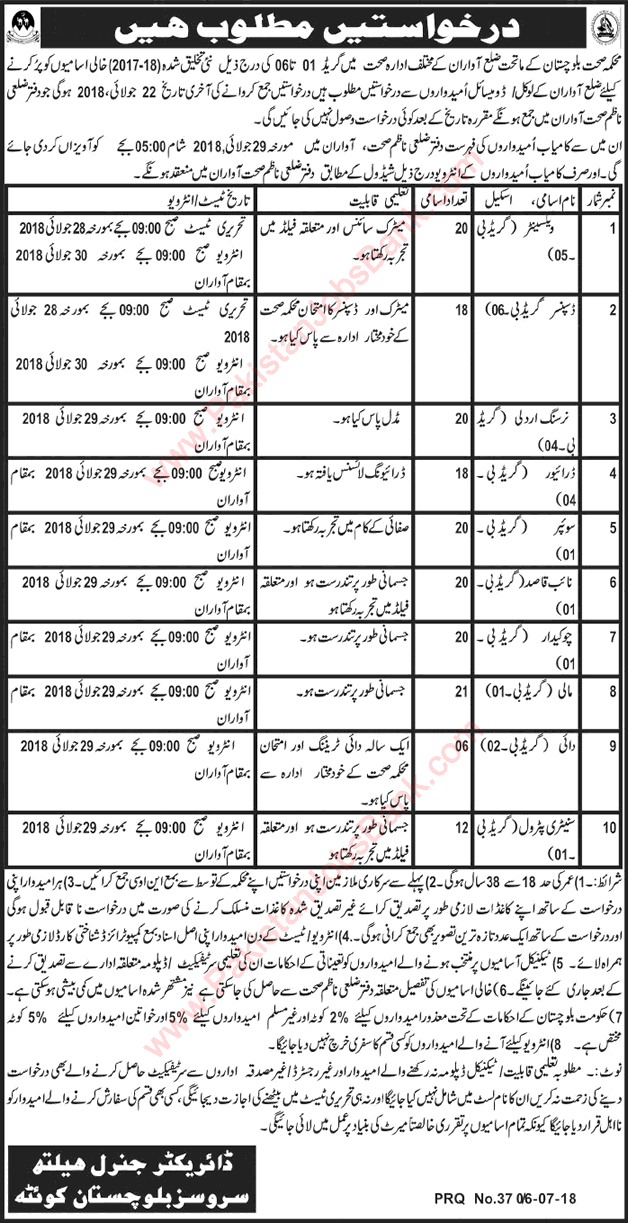 درخواستیں مطلوب ہیں
محکمہ صحت بلوچستان کے ماتحت ضلع آواران کے مختلف ادارہ صحت میں گریڈ 01 تا 06 کی درج ذیل نئی تخلیق شدہ (18-2017) خالی اسامیوں کو پُر کرنے
کیلئے ضلع آواران کے لوکل/ڈومیسائل اُمیدواروں سے درخواستیں مطلوب ہیں درخواستیں جمع کروانے کی آخری تاریخ 22 جولائی، 2018 ہوگی جو دفتر ضلعی
ناظم صحت آواران میں جمع ہونگے مقررہ تاریخ کے بعد کوئی درخواست وصول نہیں کی جائیں گی۔
ان میں سے کامیاب اُمیدواروں کی فہرست دفتر ضلعی ناظم صحت، آواران میں مورخہ 29 جولائی، 2018 شام 05:00 بجے کو آویزاں کر دی جائے
گی۔ اور صرف کامیاب اُمیدواروں کے انٹرویو درج ذیل شیڈول کے مطابق دفتر ضلعی ناظم صحت آواران میں منعقد ہونگے۔
نمبر شمار نام اسامی، اسکیل تعداد اسامی تعلیمی قابلیت تاریخ ٹیسٹ/انٹرویو
1 ویکسینیٹر (گریڈ بی 20 میٹرک سائنس اور متعلقہ فیلڈ میں تحریری ٹیسٹ صبح 09:00 بجے بمورخہ 28 جولائی 2018
۔05) تجربہ رکھتا ہو۔ انٹرویو صبح 09:00 بجے بمورخہ 30 جولائی 2018
بمقام آواران
2 ڈسپنسر (گریڈ بی۔06) 18 میٹرک اور ڈسپنسر کا امتحان محکمہ صحت تحریری ٹیسٹ صبح 09:00 بجے بمورخہ 28 جولائی
کے خود مختار ادارہ سے پاس کیا ہو۔ 2018
انٹرویو صبح 09:00 بجے بمورخہ 30 جولائی 2018
بمقام آواران
3 نرسنگ اردلی (گریڈ 20 مڈل پاس کیا ہو۔ انٹرویو صبح 09:00 بجے بمورخہ 29 جولائی 2018
بی۔04) بمقام آواران
4 ڈرائیور (گریڈ بی۔ 18 ڈرائیونگ لائسنس یافتہ ہو۔ انٹرویو صبح 09:00 بجے بمورخہ 29 جولائی 2018 بمقام
04) آواران
5 سوئپر (گریڈ بی۔ 20 صفائی کے کام میں تجربہ رکھتا ہو۔ انٹرویو صبح 09:00 بجے بمورخہ 29 جولائی 2018
01) بمقام آواران
6 نائب قاصد (گریڈ بی۔ 20 جسمانی طور پر تندرست ہو اور متعلقہ انٹرویو صبح 09:00 بجے بمورخہ 29 جولائی 2018
01) فیلڈ میں تجربہ رکھتا ہو بمقام آواران
7 چوکیدار (گریڈ بی۔ 20 جسمانی طور پر تندرست ہو۔ انٹرویو صبح 09:00 بجے بمورخہ 29 جولائی 2018 بمقام
01) آواران
8 مالی (گریڈ بی۔01) 21 جسمانی طور پر تندرست ہو۔ انٹرویو صبح 09:00 بجے بمورخہ 29 جولائی 2018 بمقام
آواران
9 دائی (گریڈ بی۔02) 06 ایک سالہ دائی ٹریننگ اور امتحان انٹرویو صبح 09:00 بجے بمورخہ 29 جولائی 2018
محکمہ صحت کے خود مختار ادارہ سے بمقام آواران
پاس کیا ہو۔
10 سنیٹری پٹرول (گریڈ بی 12 جسمانی طور پر تندرست ہو اور متعلقہ انٹرویو صبح 09:00 بجے بمورخہ 29 جولائی 2018
۔01) فیلڈ میں تجربہ رکھتا ہو بمقام آواران
شرائط:۔ 1) عمر کی حد 18 سے 38 سال ہوگی۔ 2) پہلے سے سرکاری ملازمین اپنی درخواستیں اپنے محکمہ کے توسط سے بمع این او سی جمع کرائیں۔ 3) ہر امیدوار اپنی
درخواست کے ساتھ اپنے کاغذات لازمی طور پر تصدیق کرائے غیر تصدیق شدہ کاغذات منسلک کرنے کی صورت میں درخواست نا قابل قبول ہوگی
اور درخواست کے ساتھ ایک عدد تازہ ترین تصویر بھی جمع کرانی ہوگی۔ 4) انٹرویو/ٹیسٹ کے دن امیدوار اپنی اصل اسناد بمع کمپیوٹرائزڈ شناختی کارڈ لازمی طور پر
ہمراہ لائے۔ 5) ٹیکنیکل آسامیوں پر منتخب ہونے والے امیدواروں کو تعیناتی کے احکامات ان کی تعلیمی سرٹیفکیٹ/ڈپلومہ متعلقہ ادارے سے تصدیق کرنے
کے بعد جاری کئے جائینگے۔ 6) خالی اسامیوں کی تفصیل متعلقہ دفتر ضلعی ناظم صحت سے حاصل کی جاسکتی ہے نیز مشتہر شدہ اسامیوں میں کمی بیشی ہوسکتی ہے۔
7) حکومت بلوچستان کے احکامات کے تحت معذور امیدواروں کیلئے 2% کوٹہ اور غیر مسلم امیدواروں کیلئے 5% اور خواتین امیدواروں کیلئے 5% کوٹہ
مختص ہے۔ 8) انٹرویو کیلئے آنے والے امیدواروں کو کسی قسم کا سفری خرچ نہیں دیا جائیگا۔
نوٹ:۔ مطلوبہ تعلیمی قابلیت/ٹیکنیکل ڈپلومہ نہ رکھنے والے امیدوار اور غیر رجسٹرڈ/غیر مصدقہ اداروں سے سرٹیفکیٹ حاصل کرنے والے بھی درخواست
دینے کی زحمت نہ کریں ان کا نام لسٹ میں شامل نہیں کیا جائیگا اور نہ ہی تحریری ٹیسٹ میں بیٹھنے کی اجازت دیجائیگی، کسی بھی قسم کی سفارش کرنے والے امیدوار کو
نا اہل قرار دیا جائیگا کیونکہ تمام اسامیوں پر تقرری خالصتاً میرٹ کی بنیاد پر عمل میں لائی جائیگی۔
ڈائریکٹر جنرل ہیلتھ
سروسز بلوچستان کوئٹہ
PRQ No.37 06-07-18
www.PakistanJobsBank.com
www.PakistanJobsBank.com